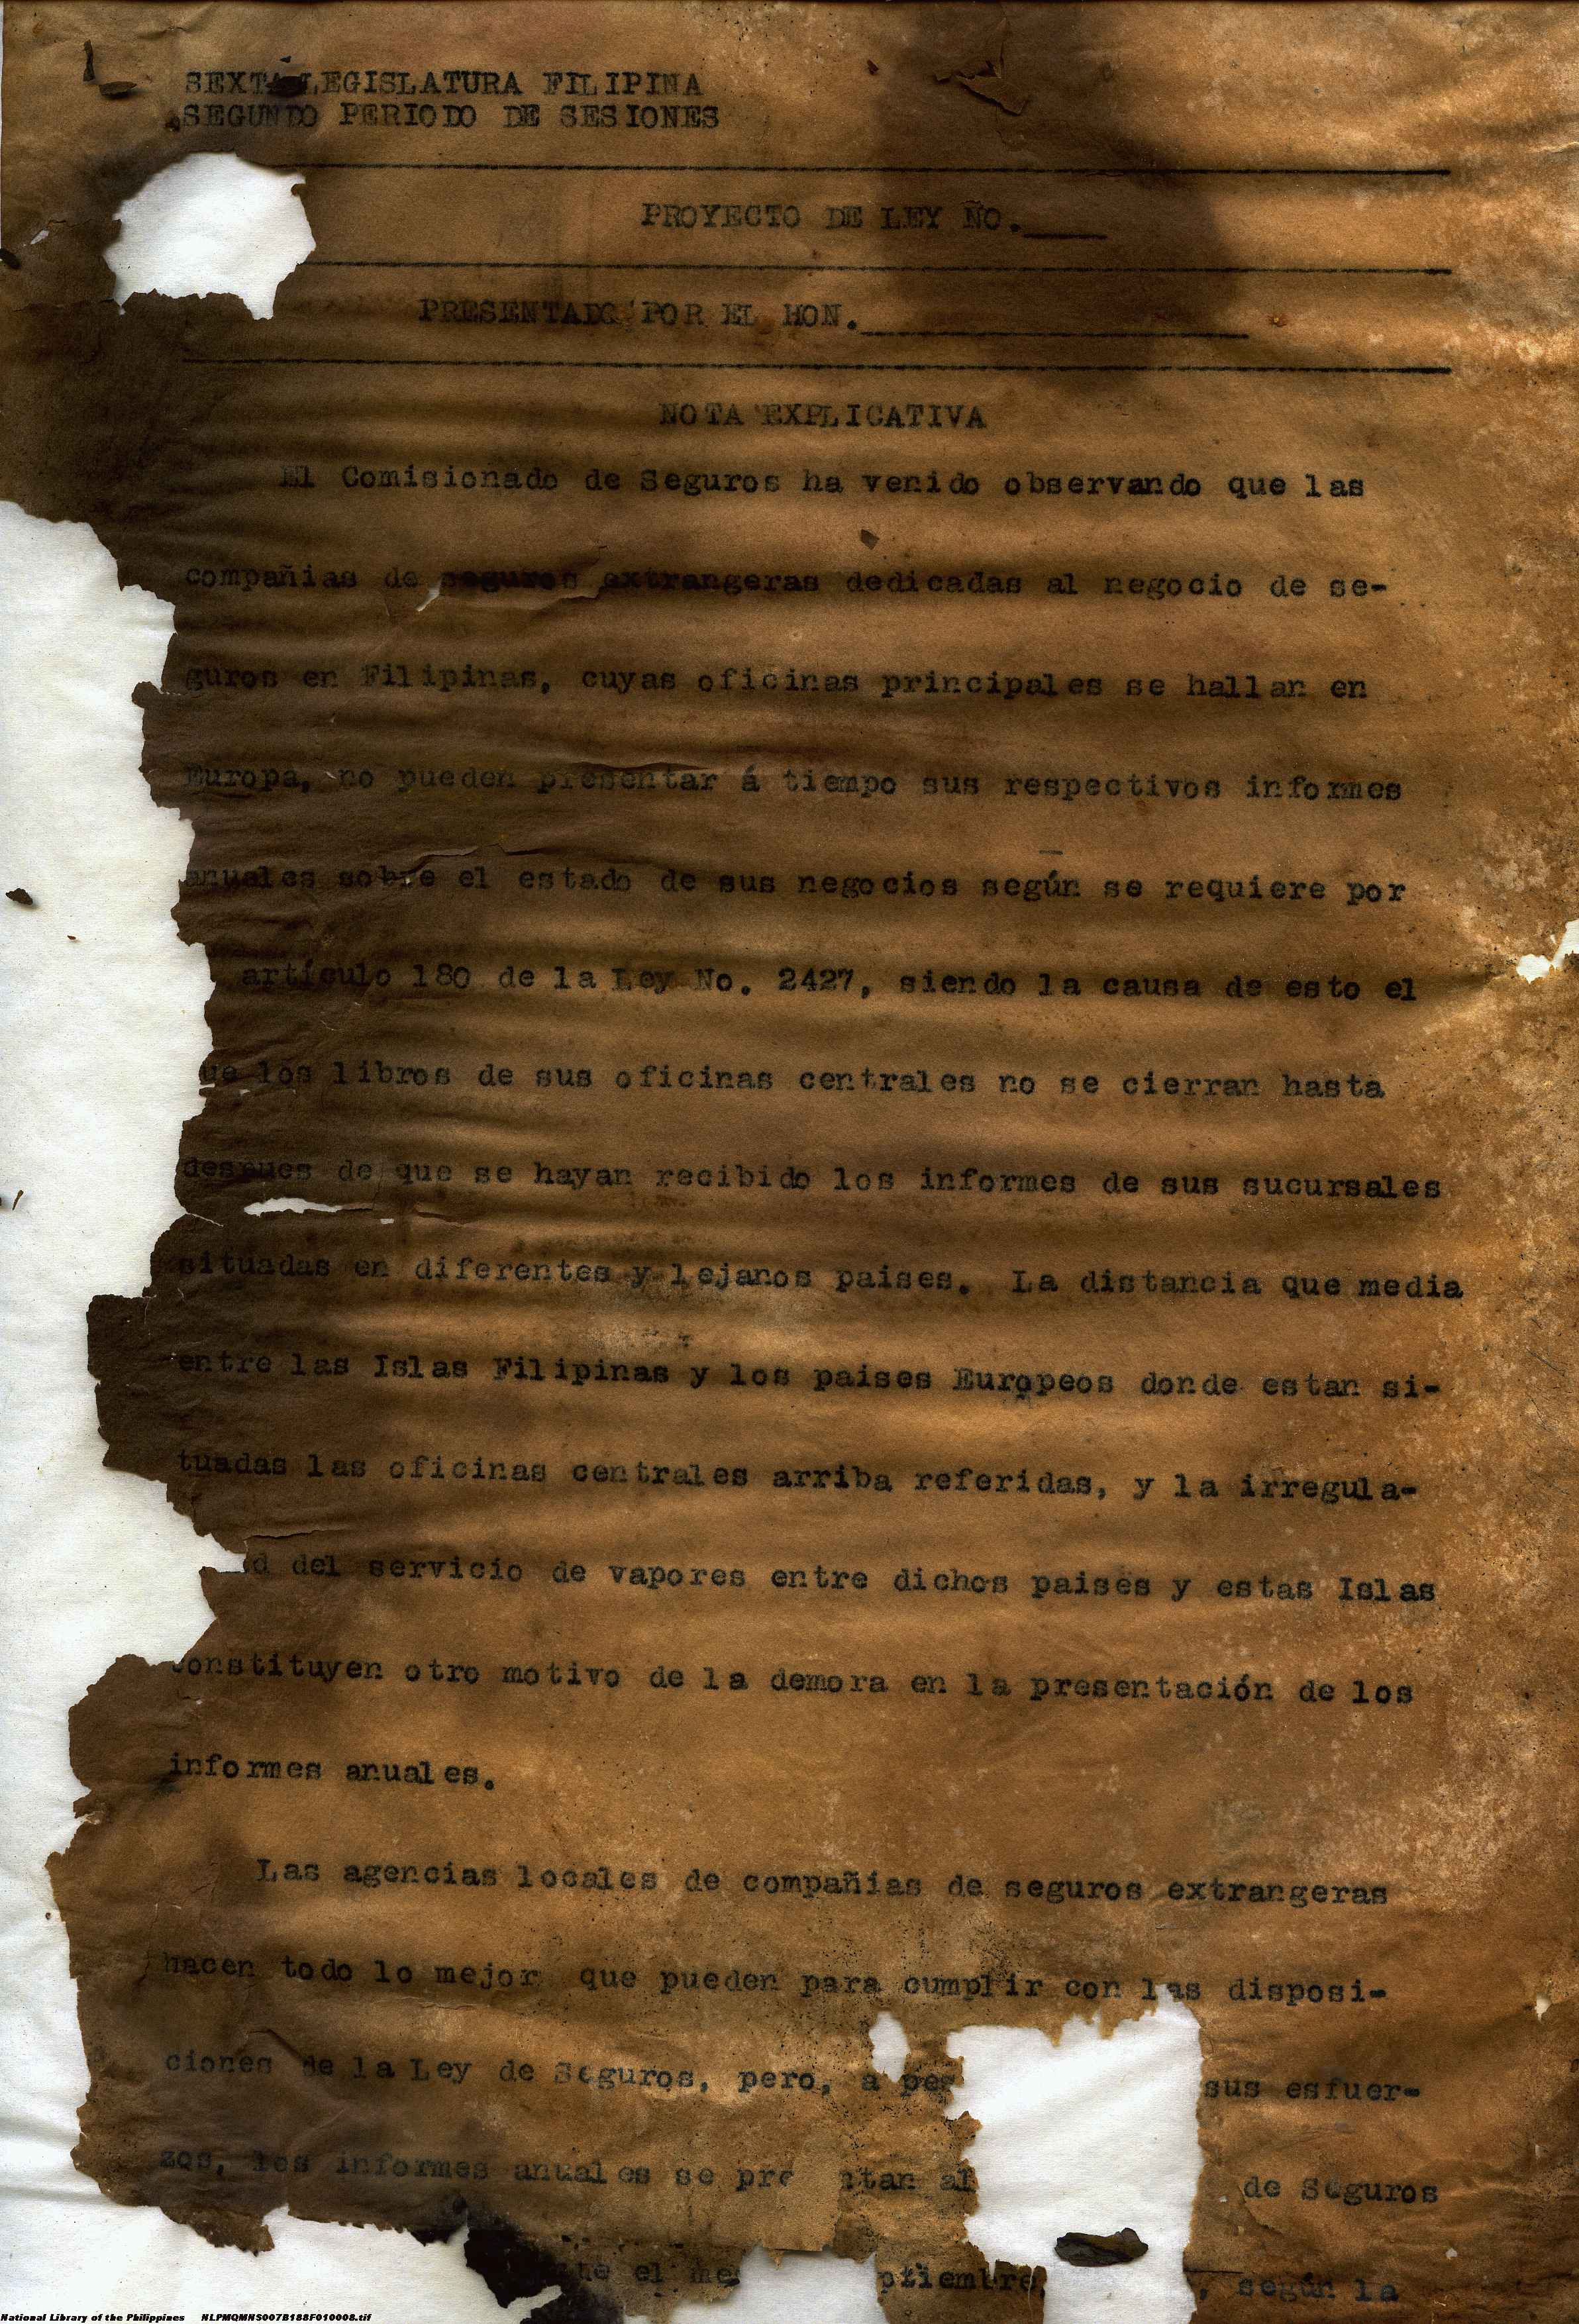 SEXTA LEGISLATURA FILIPINA
SEGUNDO PERIODO DE SESIONES
PROYECTO DE LEY ÑO.____
PRESENTADO POR EL HON.____________________
NOTA EXPLICATIVA
El Comisionado de Seguros ha venido observando que las
compañias de seguros extrangeras dedicadas al negocio de se-
guros en Filipinas, cuyas oficinas principales se hallan en
Europa, no pueden presentar á tiempo sus respectivos informes
anuales sobre el estado de sus negocios según se requiere por
artículo 180 de la Ley No. 2427, siendo la causa de esto el
ue los libros de sus oficinas centrales no se cierran hasta
despues de que se hayan recibido los informes de sus sucursales
situadas en diferentes y lejanos paises. La distancia que media
entre las Islas Filipinas y los paises Europeos donde estan si-
tuadas las oficinas centrales arriba referidas, y la irregula-
d del servicio de vapores entre dichos paises y estas Islas
constituyen otro motivo de la demora en la presentación de los
informes anuales.
Las agencias locales de compañias de seguros extrangeras
hacen todo lo mejor que pueden para cumplir con las disposi-
ciones de la Ley de Seguros, pero, a pes sus esfuer-
zos, los informes anuales se pre ntan al de Seguros
te el me ptiembre, , según la
National Library of the Philippines NLPMQMNS007B188F010008.tif